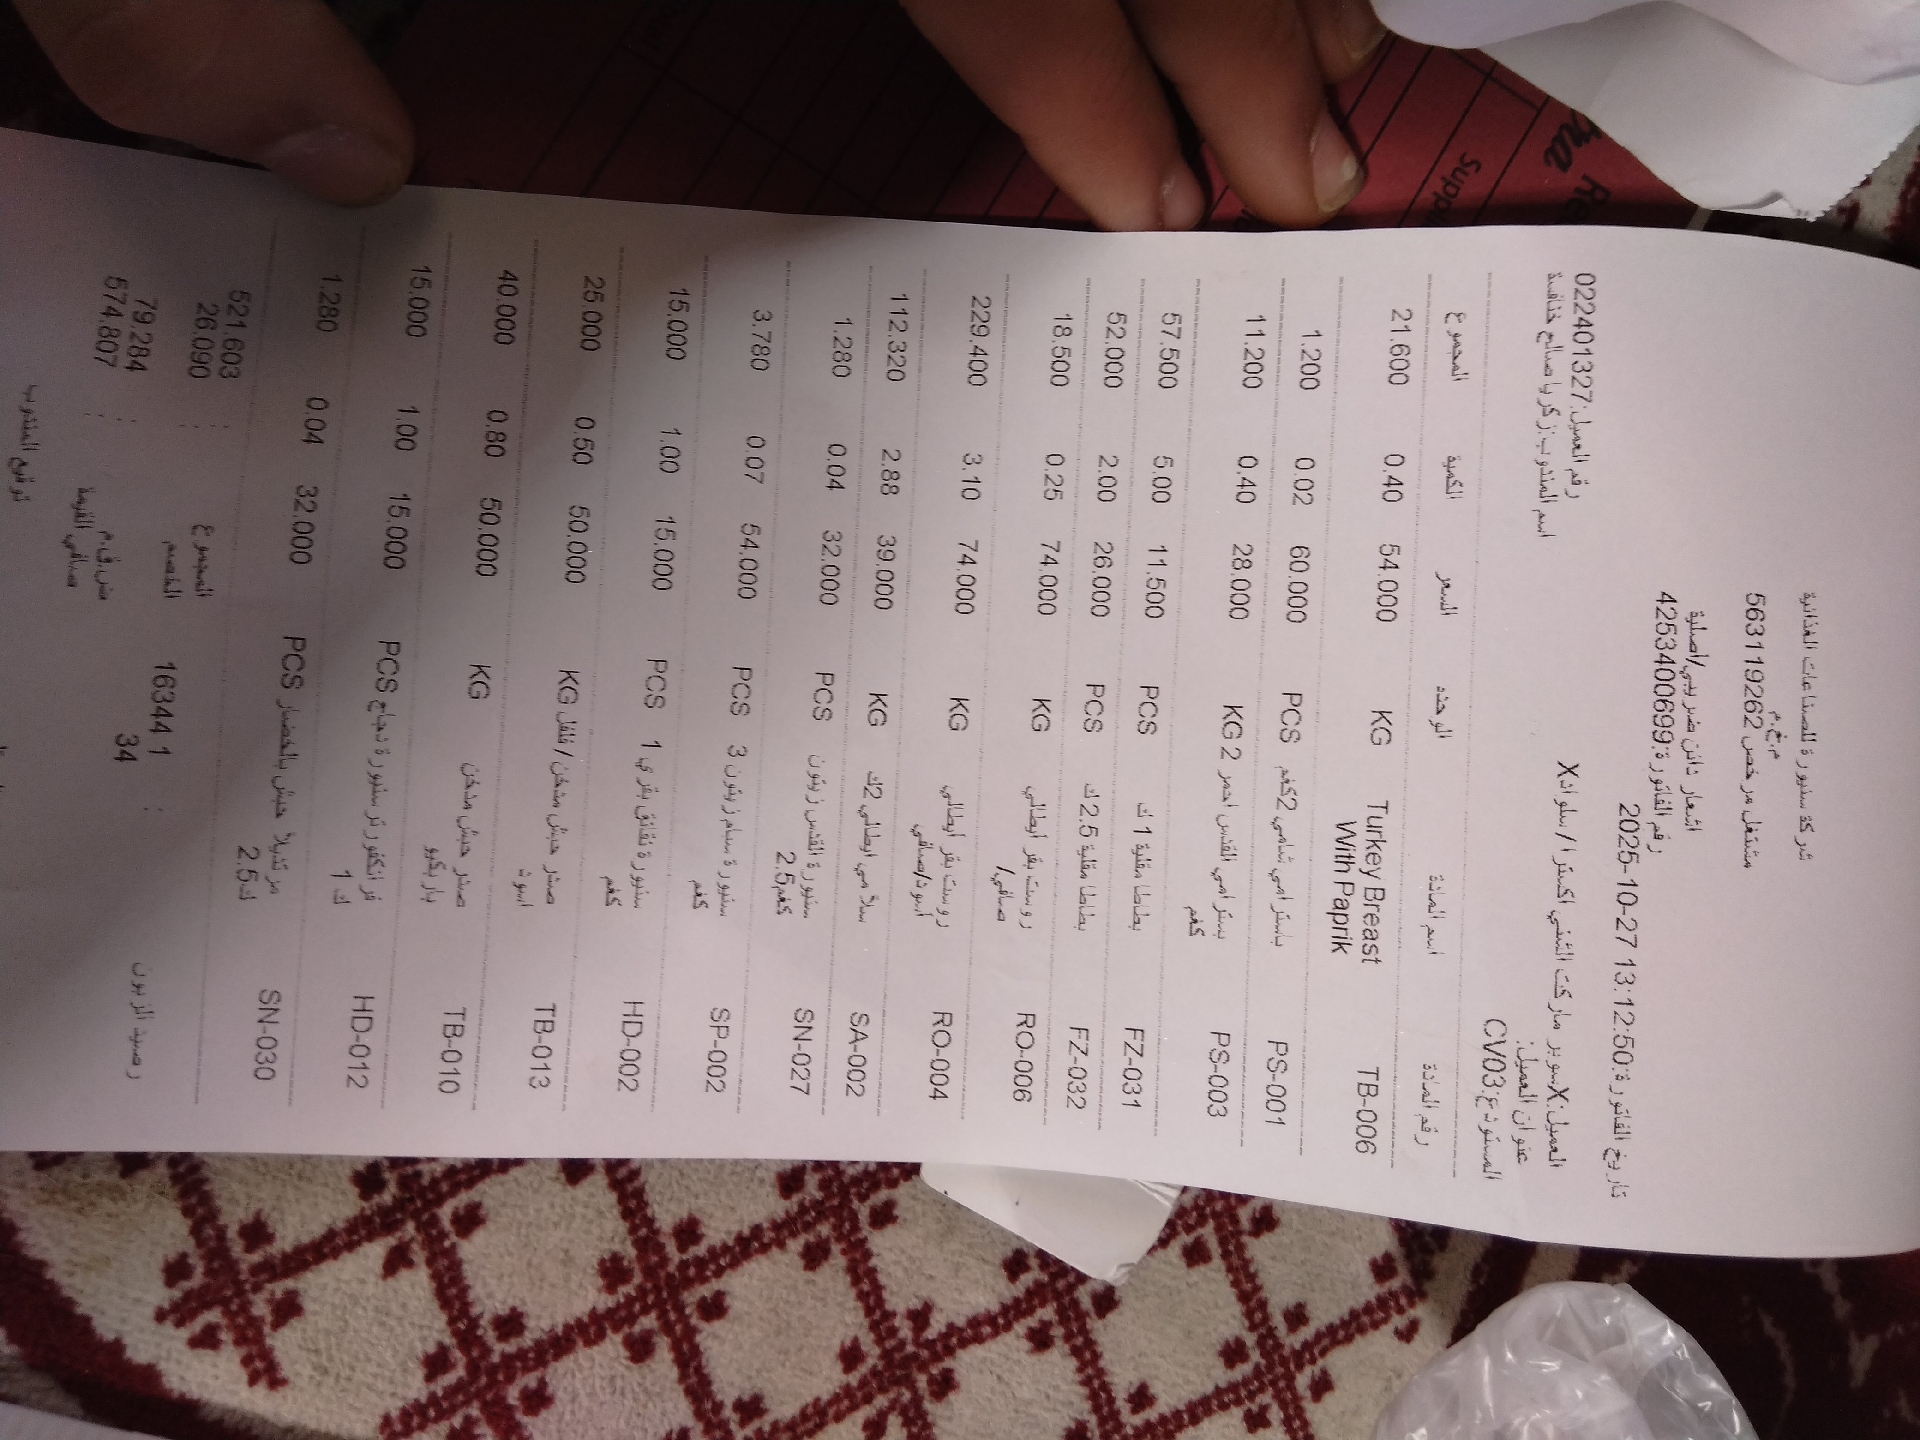 شركة سنيورة للصناعات الغذائية
م.خ.م
مشتغل مرخص 563119262
اشعار دائن ضريبي/اصلية
رقم الفاتورة:4253400699
تاريخ الفاتورة:2025-10-27 13:12:50
العميل:Xسوبر ماركت الشني اكسترا / سلواد X
رقم العميل:02240132​7
عنوان العميل:
اسم المندوب:زكريا صالح
المستودع:CV03
رقم المادة اسم المادة الوحده السعر الكمية المجموع
TB-006 Turkey Breast With Paprik KG 54.000 0.40 21.600
PS-001 باسترامي شامي 2كغم PCS 60.000 0.02 1.200
PS-003 بسترامي القدس احمر 2 كغم KG 28.000 0.40 11.200
FZ-031 بطاطا مقلية 1 ك PCS 11.500 5.00 57.500
FZ-032 بطاطا مقلية 2.5 ك PCS 26.000 2.00 52.000
RO-006 روست بقر ايطالي /صافي KG 74.000 0.25 18.500
RO-004 روست بقر ايطالي اسود/صافي KG 74.000 3.10 229.400
SA-002 سلامي ايطالي 2ك KG 39.000 2.88 112.320
SN-027 سنيورة القدس زيتون 2.5كغم PCS 32.000 0.04 1.280
SP-002 سنيورة سام زيتون 3 كغم PCS 54.000 0.07 3.780
HD-002 سنيورة نقانق بقري 1 كغم PCS 15.000 1.00 15.000
TB-013 صدر حبش مدخن / فلفل اسود KG 50.000 0.50 25.000
TB-010 صدر حبش مدخن باربكيو KG 50.000 0.80 40.000
HD-012 فرانكفورتر سنيورة دجاج 1 ك PCS 15.000 1.00 15.000
SN-030 مرتديلا حبش بالخضار 2.5ك PCS 32.000 0.04 1.280
المجموع : 521.603
الخصم : 26.090
ض.ق.م : 79.284
صافي القيمة : 574.807
رصيد الزبون : 16344 1
34
توقيع المندوب
Supplie